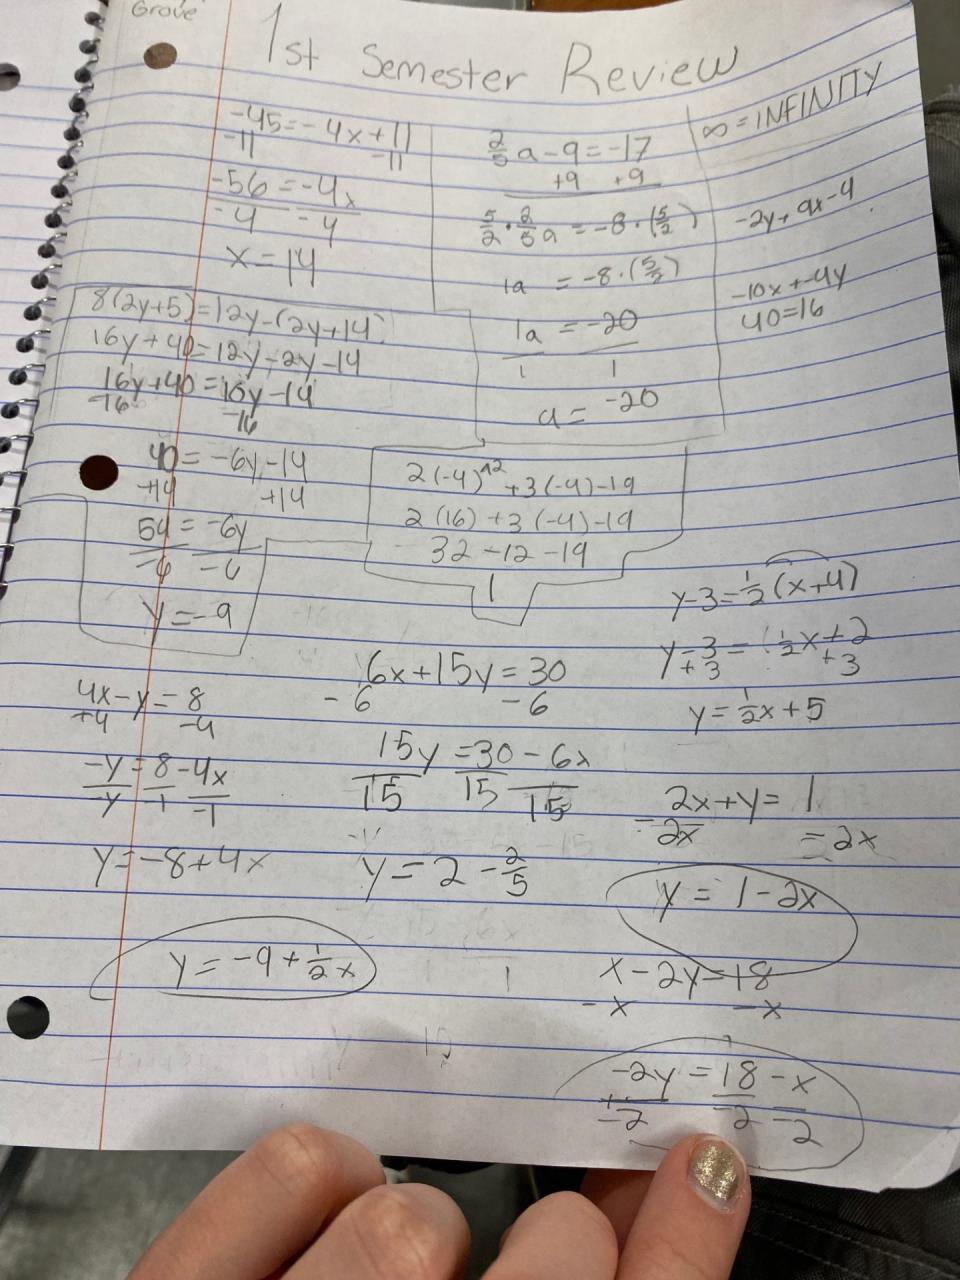 Grove
1st Semester Review
-45=-4x+11
-11 -11
-56=-4x
-4 -4
x=14
2/5 a-9=-17
+9 +9
5/2·2/5a=-8·(5/2)
1a=-8·(5/2)
1a=-20
1 1
a=-20
∞=INFINITY
-2y+9x-4
-10x+-4y
40=16
8(2y+5)=12y-(2y+14)
16y+40=12y-2y-14
16y+40=10y-14
-16 -16
40=-6y-14
+14 +14
54=-6y
-6 -6
y=-9
2(-4)^2+3(-4)-19
2(16)+3(-4)-19
32-12-19
1
y-3=1/2(x+4)
y-3=(1/2x+2
+3 +3
y=1/2x+5
4x-y=8
+4 -4
-y=8-4x
-y -1 -1
y=-8+4x
6x+15y=30
-6 -6
15y=30-6x
15 15 15
y=2-2/5
2x+y=1
-2x =2x
y=1-2x
x-2y=18
-x -x
-2y=18-x
-2 -2 -2
y=-9+1/2x